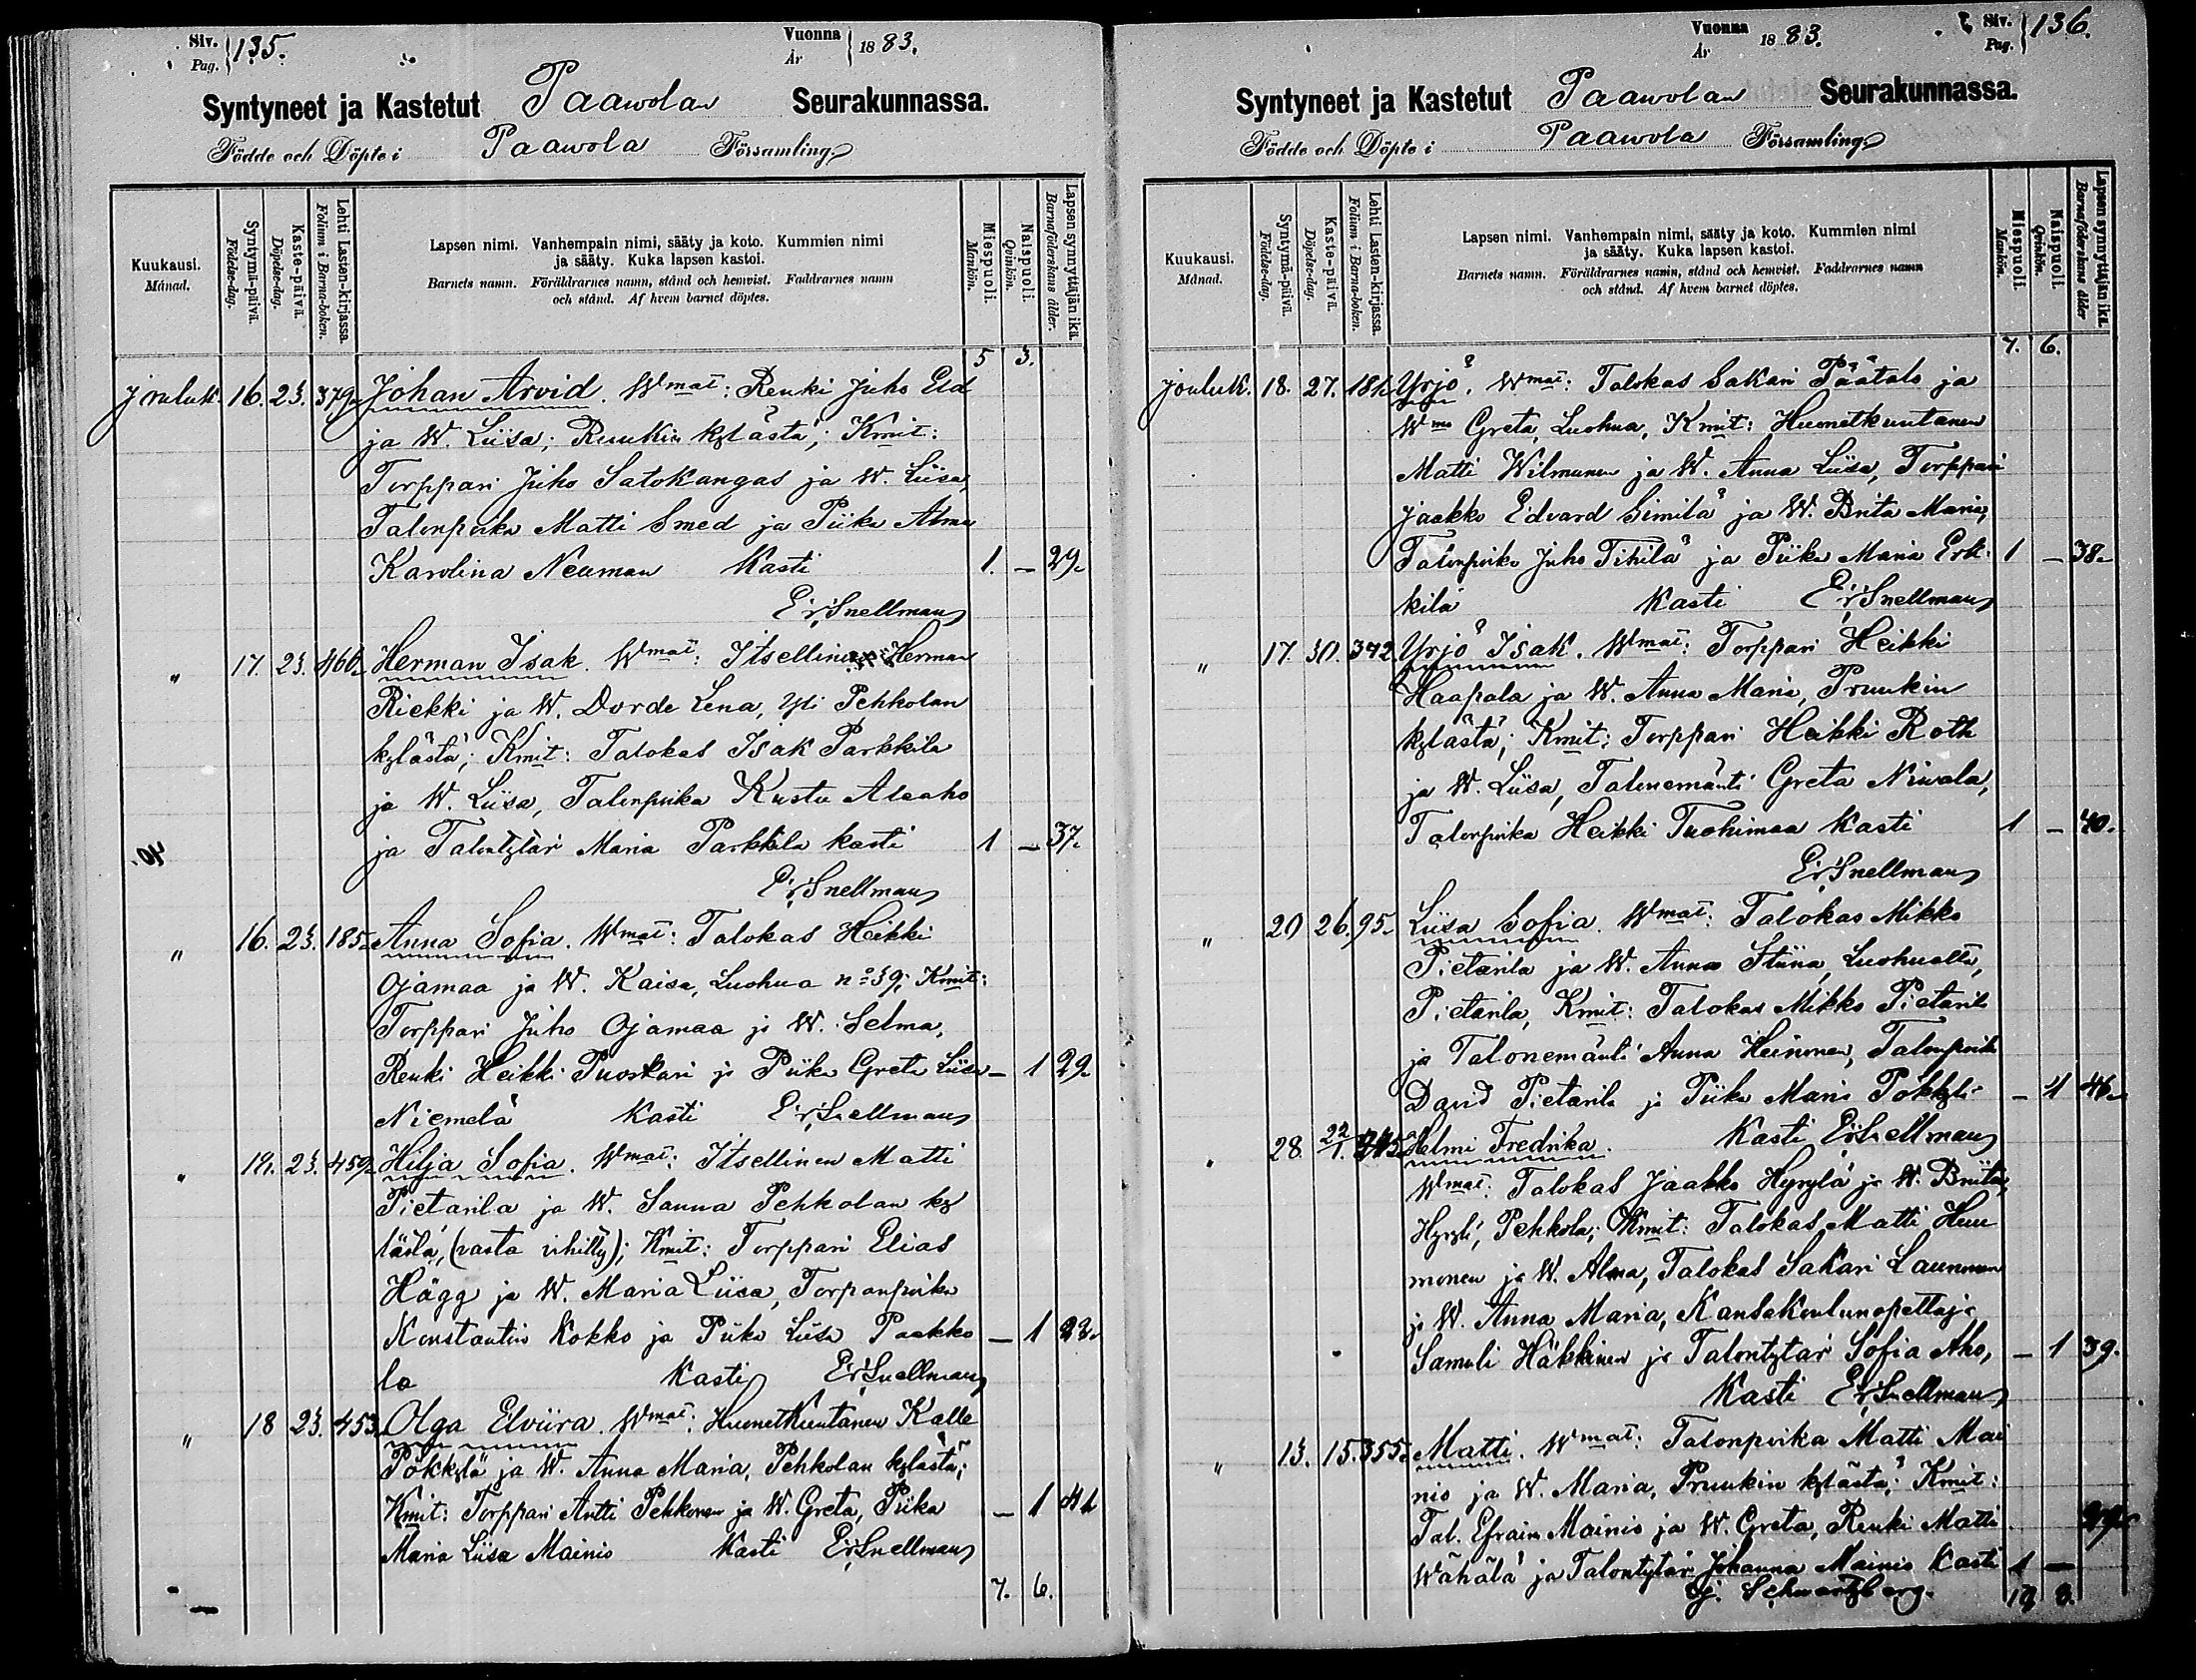 Siv. Pag. 135. Vuonna År 1883.
Syntyneet ja Kastetut Paawolan Seurakunnassa.
Födde och Döpte i Paawola Församling
Kuukausi. Månad.
Syntymä-päivä. Födelse-dag.
Kaste-päivä. Döpelse-dag.
Lehti Lasten-kirjassa. Folium i Barna-boken.
Lapsen nimi. Vanhempain nimi, sääty ja koto. Kummien nimi
ja sääty. Kuka lapsen kastoi.
Barnets namn. Föräldrarnes namn, stånd och hemvist. Faddrarnes namn
och stånd. Af hvem barnet döptes.
Miespuoli. Mankön.
Naispuoli. Qvinkön.
Lapsen synnyttäjän ikä. Barnaföderskans ålder.
5 3.
Jouluk. 16. 23. 379 Johan Arvid. Wmat: Renki Juho Eld
ja W. Liisa; Ruukin kylästä; Kmit:
Torppari Juho Satokangas ja W. Liisa,
Talonpoika Matti Smed ja Piika Alma
Karolina Neuman Kasti 1. – 29.
Er. Snellman
" 17. 23. 466 Herman Isak. Wmat: Itsellinen Herman
Riekki ja W. Dorde Lena, Yli Pehkolan
kylästä; Kmit: Talokas Isak Parkkila
ja W. Liisa, Talonpoika Kustu Aleaho
ja Talontytär Maria Parkkila kasti 1 – 37.
Er. Snellman
" 16. 23. 185 Anna Sofia. Wmat: Talokas Heikki
Ojamaa ja W. Kaisa, Luohua no 39; Kmit:
Torppari Juho Ojamaa ja W. Selma,
Renki Heikki Puoskari ja Piika Greta Liisa – 1 29.
Niemelä Kasti Er. Snellman
" 19. 23. 459 Hilja Sofia. Wmat: Itsellinen Matti
Pietarila ja W. Sanna Pehkolan ky
lästä, (vasta vihitty); Kmit: Torppari Elias
Hägg ja W. Maria Liisa, Torpanpoika
Konstantin Kokko ja Piika Liisa Paakko – 1
la Kasti Er. Snellman
" 18 23. 453 Olga Elviira. Wmat: Huonetkuntanen Kalle
Pökkylä ja W. Anna Maria, Pehkolan kylästä;
Kmit: Torppari Antti Pehkonen ja W. Greta, Piika – 1
Maria Liisa Mainio Kasti Er. Snellman
7. 6.
Siv. Pag. 136. Vuonna År 1883.
Syntyneet ja Kastetut Paawolan Seurakunnassa.
Födde och Döpte i Paawola Församling
Kuukausi. Månad.
Syntymä-päivä. Födelse-dag.
Kaste-päivä. Döpelse-dag.
Lehti Lasten-kirjassa. Folium i Barna-boken.
Lapsen nimi. Vanhempain nimi, sääty ja koto. Kummien nimi
ja sääty. Kuka lapsen kastoi.
Barnets namn. Föräldrarnes namn, stånd och hemvist. Faddrarnes namn
och stånd. Af hvem barnet döptes.
Miespuoli. Mankön.
Naispuoli. Qvinkön.
Lapsen synnyttäjän ikä. Barnaföderskans ålder
7. 6.
Jouluk. 18. 27. Yrjö. Wmat: Talokas Sakari Päätalo ja
Wmo Greta, Luohua, Kmit: Huonetkuntanen
Matti Wilmunen ja W. Anna Liisa, Torppari
Jaakko Edvard Similä ja W. Brita Maria,
Talonpoika Juho Tihilä ja Piika Maria Erk- 1 – 38.
kilä Kasti Er. Snellman
" 17. 30. 342. Yrjö Isak. Wmat: Torppari Heikki
Haapala ja W. Anna Maria, Pruukin
kylästä; Kmit: Torppari Heikki Roth
ja W. Liisa, Talonemäntä Greta Niwala,
Talonpoika Heikki Tuohimaa Kasti 1 – 40.
Er. Snellman
" 20 26. 95. Liisa Sofia. Wmat: Talokas Mikko
Pietarila ja W. Anna Stiina, Luohualta,
Pietarila, Kmit: Talokas Mikko Pietarila
ja Talonemäntä Anna Heinonen, Talonpoika
David Pietarila ja Piika Maria Pökkylä – 1 46.
Kasti Er. Snellman
" 28. 22/1. Helmi Fredrika.
Wmat: Talokas Jaakko Hyrylä ja W. Briita,
Hyrylä, Pehkola; Kmit: Talokas Matti Huu
monen ja W. Alma, Talokas Sakari Launonen
ja W. Anna Maria, Kansakoulunopettaja
Samuli Häkkinen ja Talontytär Sofia Aho, – 1 39.
Kasti Er. Snellman
" 13. 15. 355. Matti. Wmat: Talonpoika Matti Mai
nio ja W. Maria, Pruukin kylästä; Kmit:
Tal. Efraim Mainio ja W. Greta, Renki Matti
Wähälä ja Talontytär Johanna Mainio Kasti 1 –
Schwartzberg.
10 8.